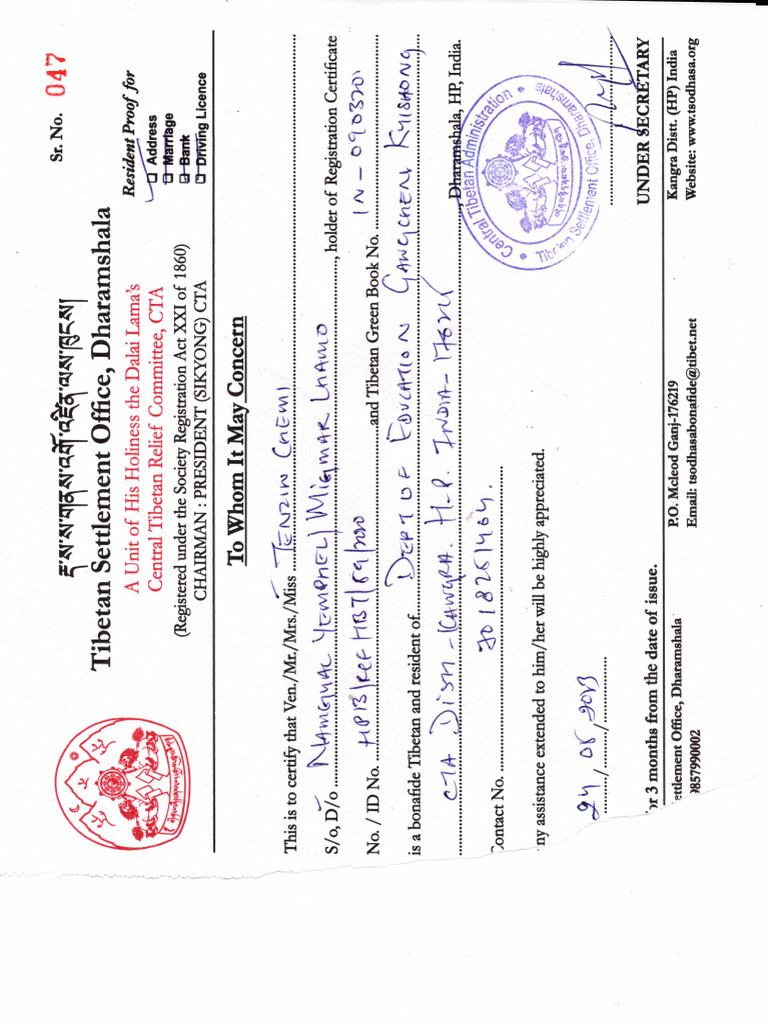 Sr. No. 047
རྡ་ས་ས་གནས་འགོ་འཛིན་ལས་ཁུངས།
Tibetan Settlement Office, Dharamshala
A Unit of His Holiness the Dalai Lama's
Central Tibetan Relief Committee, CTA
(Registered under the Society Registration Act XXI of 1860)
CHAIRMAN : PRESIDENT (SIKYONG) CTA
Resident Proof for
Address
Marriage
Bank
Driving Licence
To Whom It May Concern
This is to certify that Ven./Mr./Mrs./Miss TENZIN CHEMI
S/o, D/o NAMGYAL YEMPHEL/MIGMAR LHAMO, holder of Registration Certificate
No. / ID No. and Tibetan Green Book No. IN-0903201
is a bonafide Tibetan and resident of DEPT OF EDUCATION GANGCHEN KYISHONG
CTA DISTT-KANGRA. H.P. INDIA- Dharamshala, HP, India.
Contact No. 7018251464.
ny assistance extended to him/her will be highly appreciated.
Central Tibetan Administration
Tibetan Settlement Office, Dharamshala
UNDER SECRETARY
or 3 months from the date of issue.
ettlement Office, Dharamshala P.O. Mcleod Ganj-176219 Kangra Distt. (HP) India
9857990002 Email: tsodhasabonafide@tibet.net Website: www.tsodhasa.org